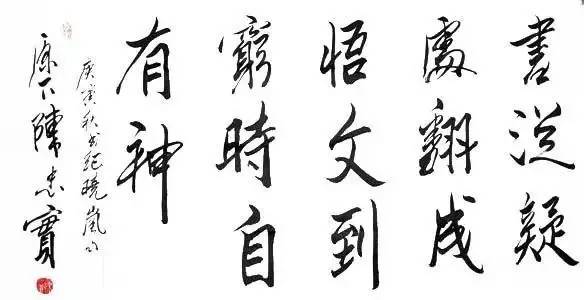 書從疑
處翻成
悟文到
窮時自
有神
庚寅秋书紀曉嵐句
原下陳忠實